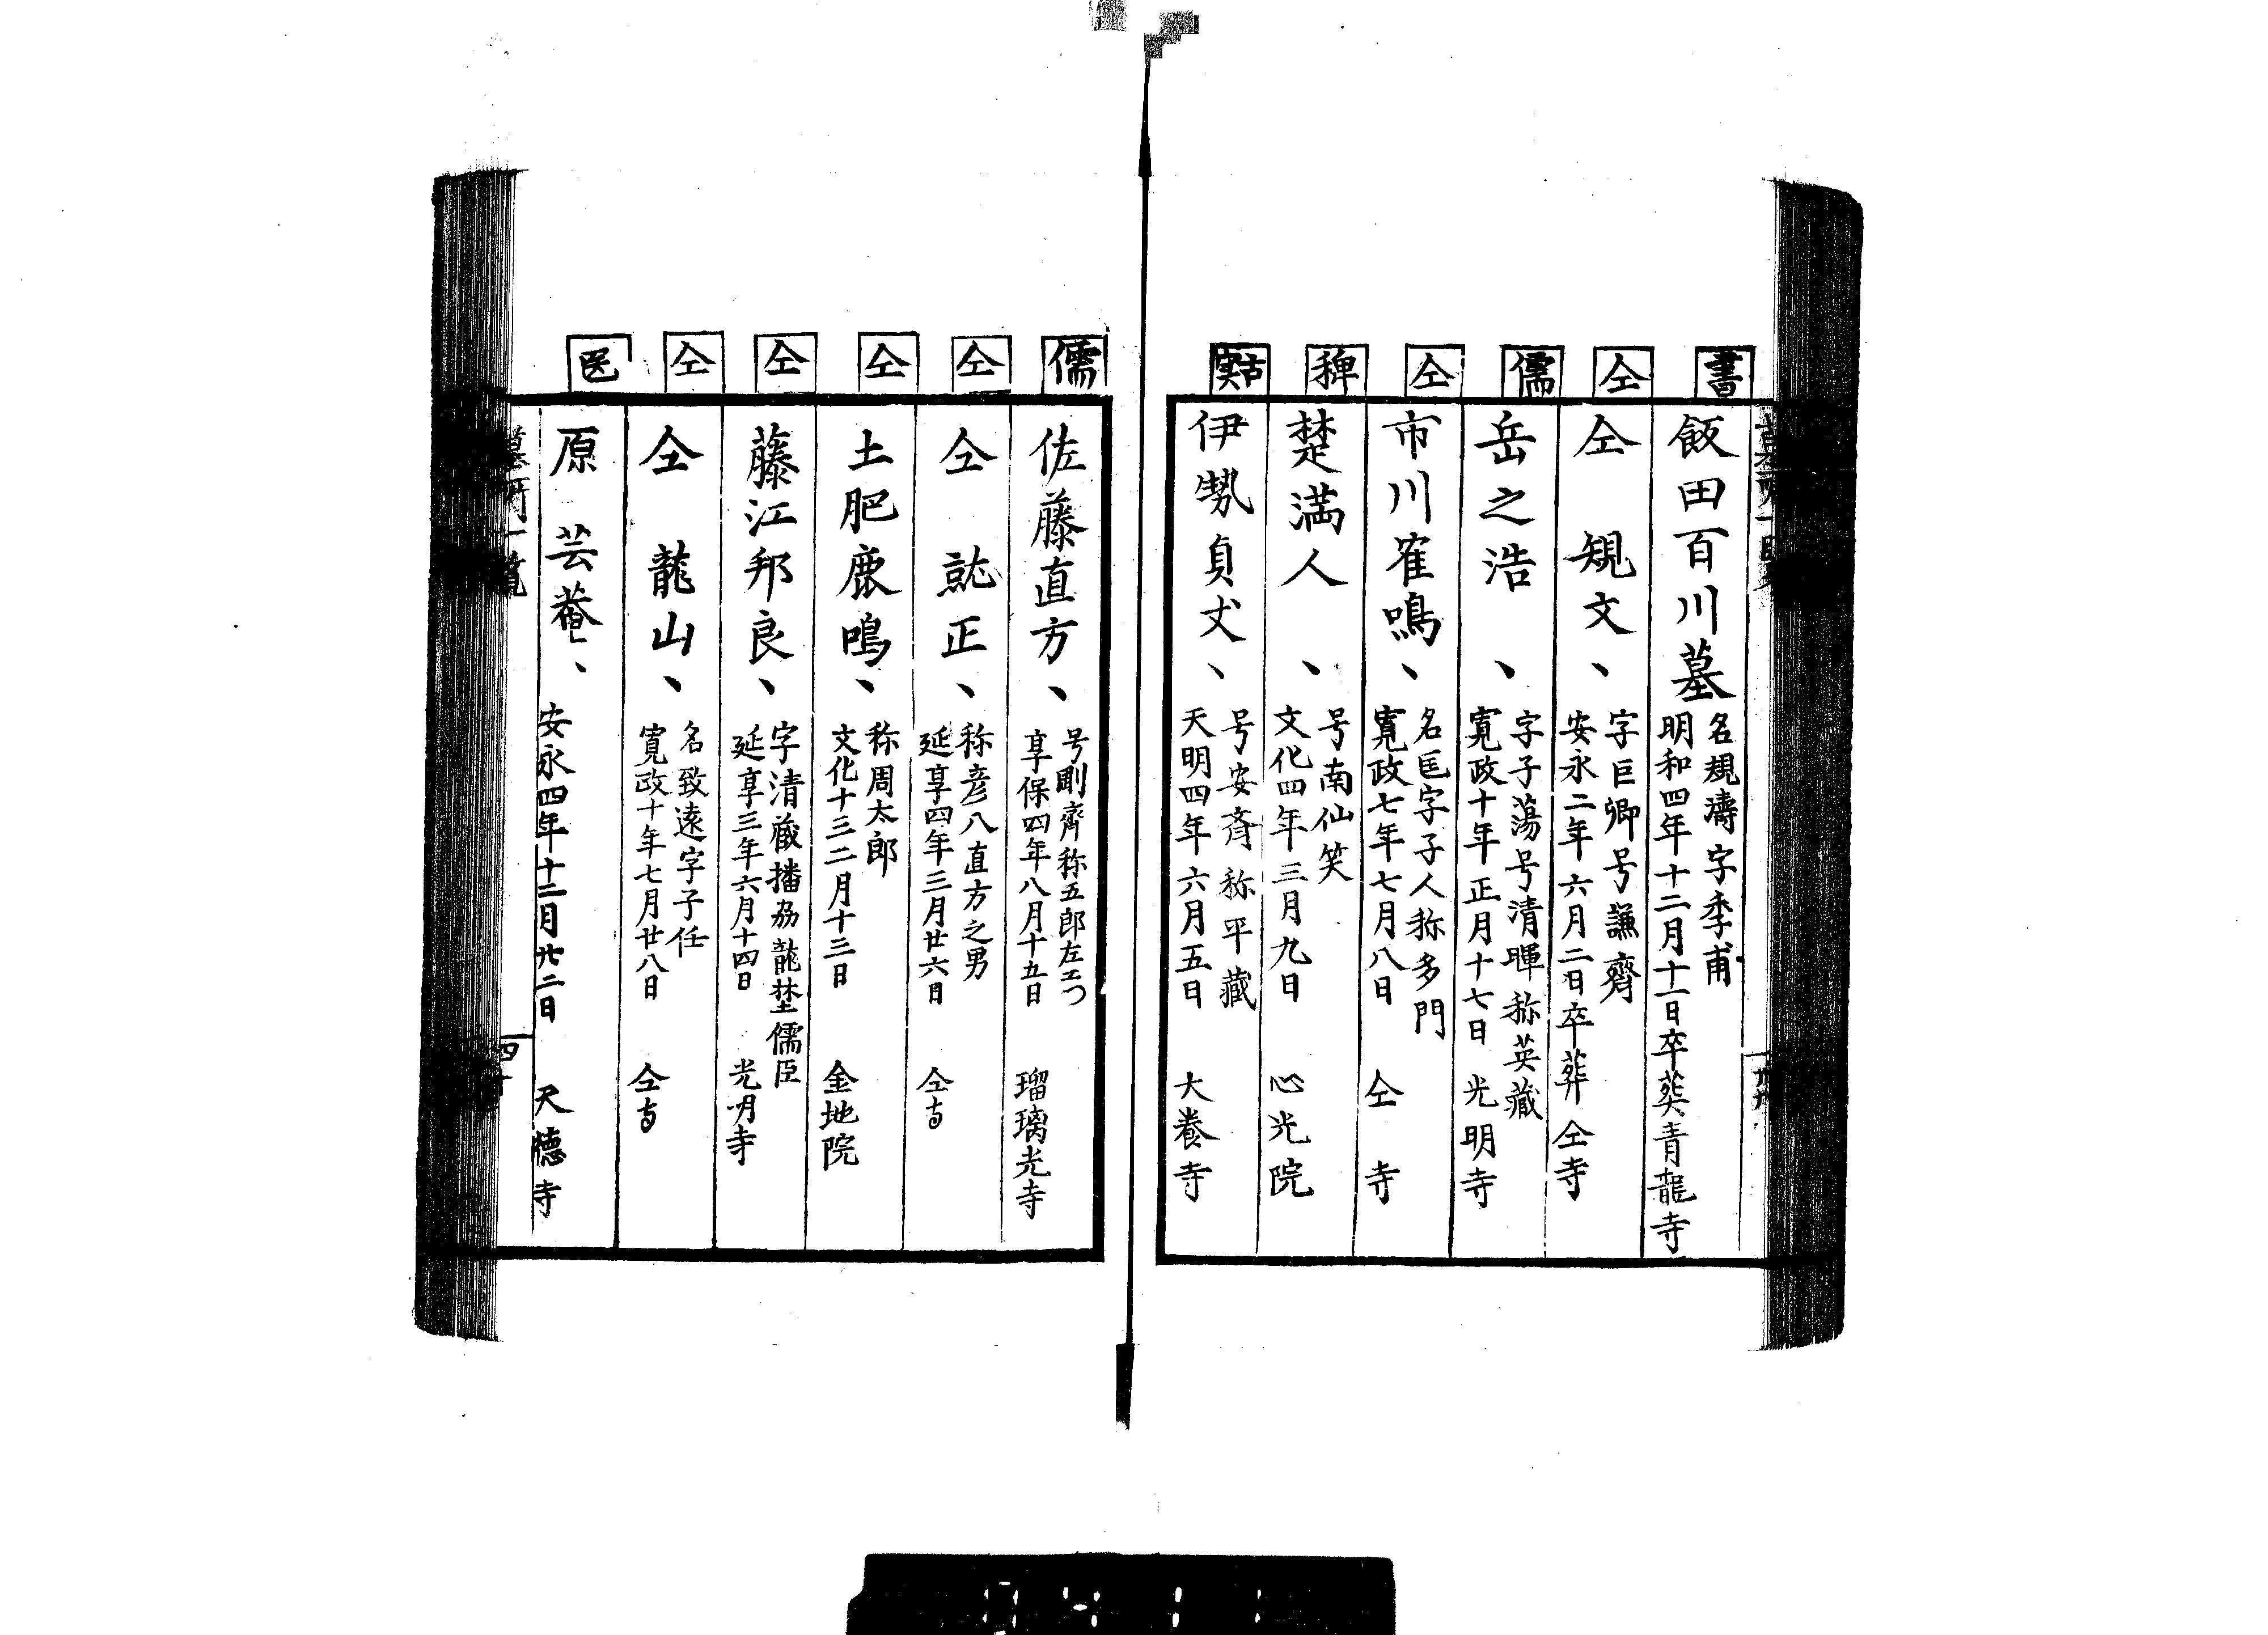 書
飯田百川墓
名規濤字季甫
明和四年十二月十一日卒葬青龍寺
仝
仝 規文、
字巨卿号謙齊
安永二年六月二日卒葬仝寺
儒
岳之浩、
字子蕩号清暉称英藏
寛政十年正月十七日 光明寺
仝
市川寉鳴、
名匡字子人称多門
寛政七年七月八日 仝寺
稗
楚満人、
号南仙笑
文化四年三月九日 心光院
古実
伊勢貞丈、
号安斉称平藏
天明四年六月五日 大養寺
儒
佐藤直方、
号剛齊称五郎左エつ
享保四年八月十五日 瑠璃光寺
仝
仝 就正、
称彦八直方之男
延享四年三月廿六日 仝寺
仝
土肥鹿鳴、
称周太郎
文化十三二月十三日 金地院
仝
藤江邦良、
字清蔵播刕龍埜儒臣
延享三年六月十四日 光明寺
仝
仝 龍山、
名致遠字子任
寛政十年七月廿八日 仝寺
医
原芸菴、
安永四年十二月廿二日 天徳寺
墓所一覧
四